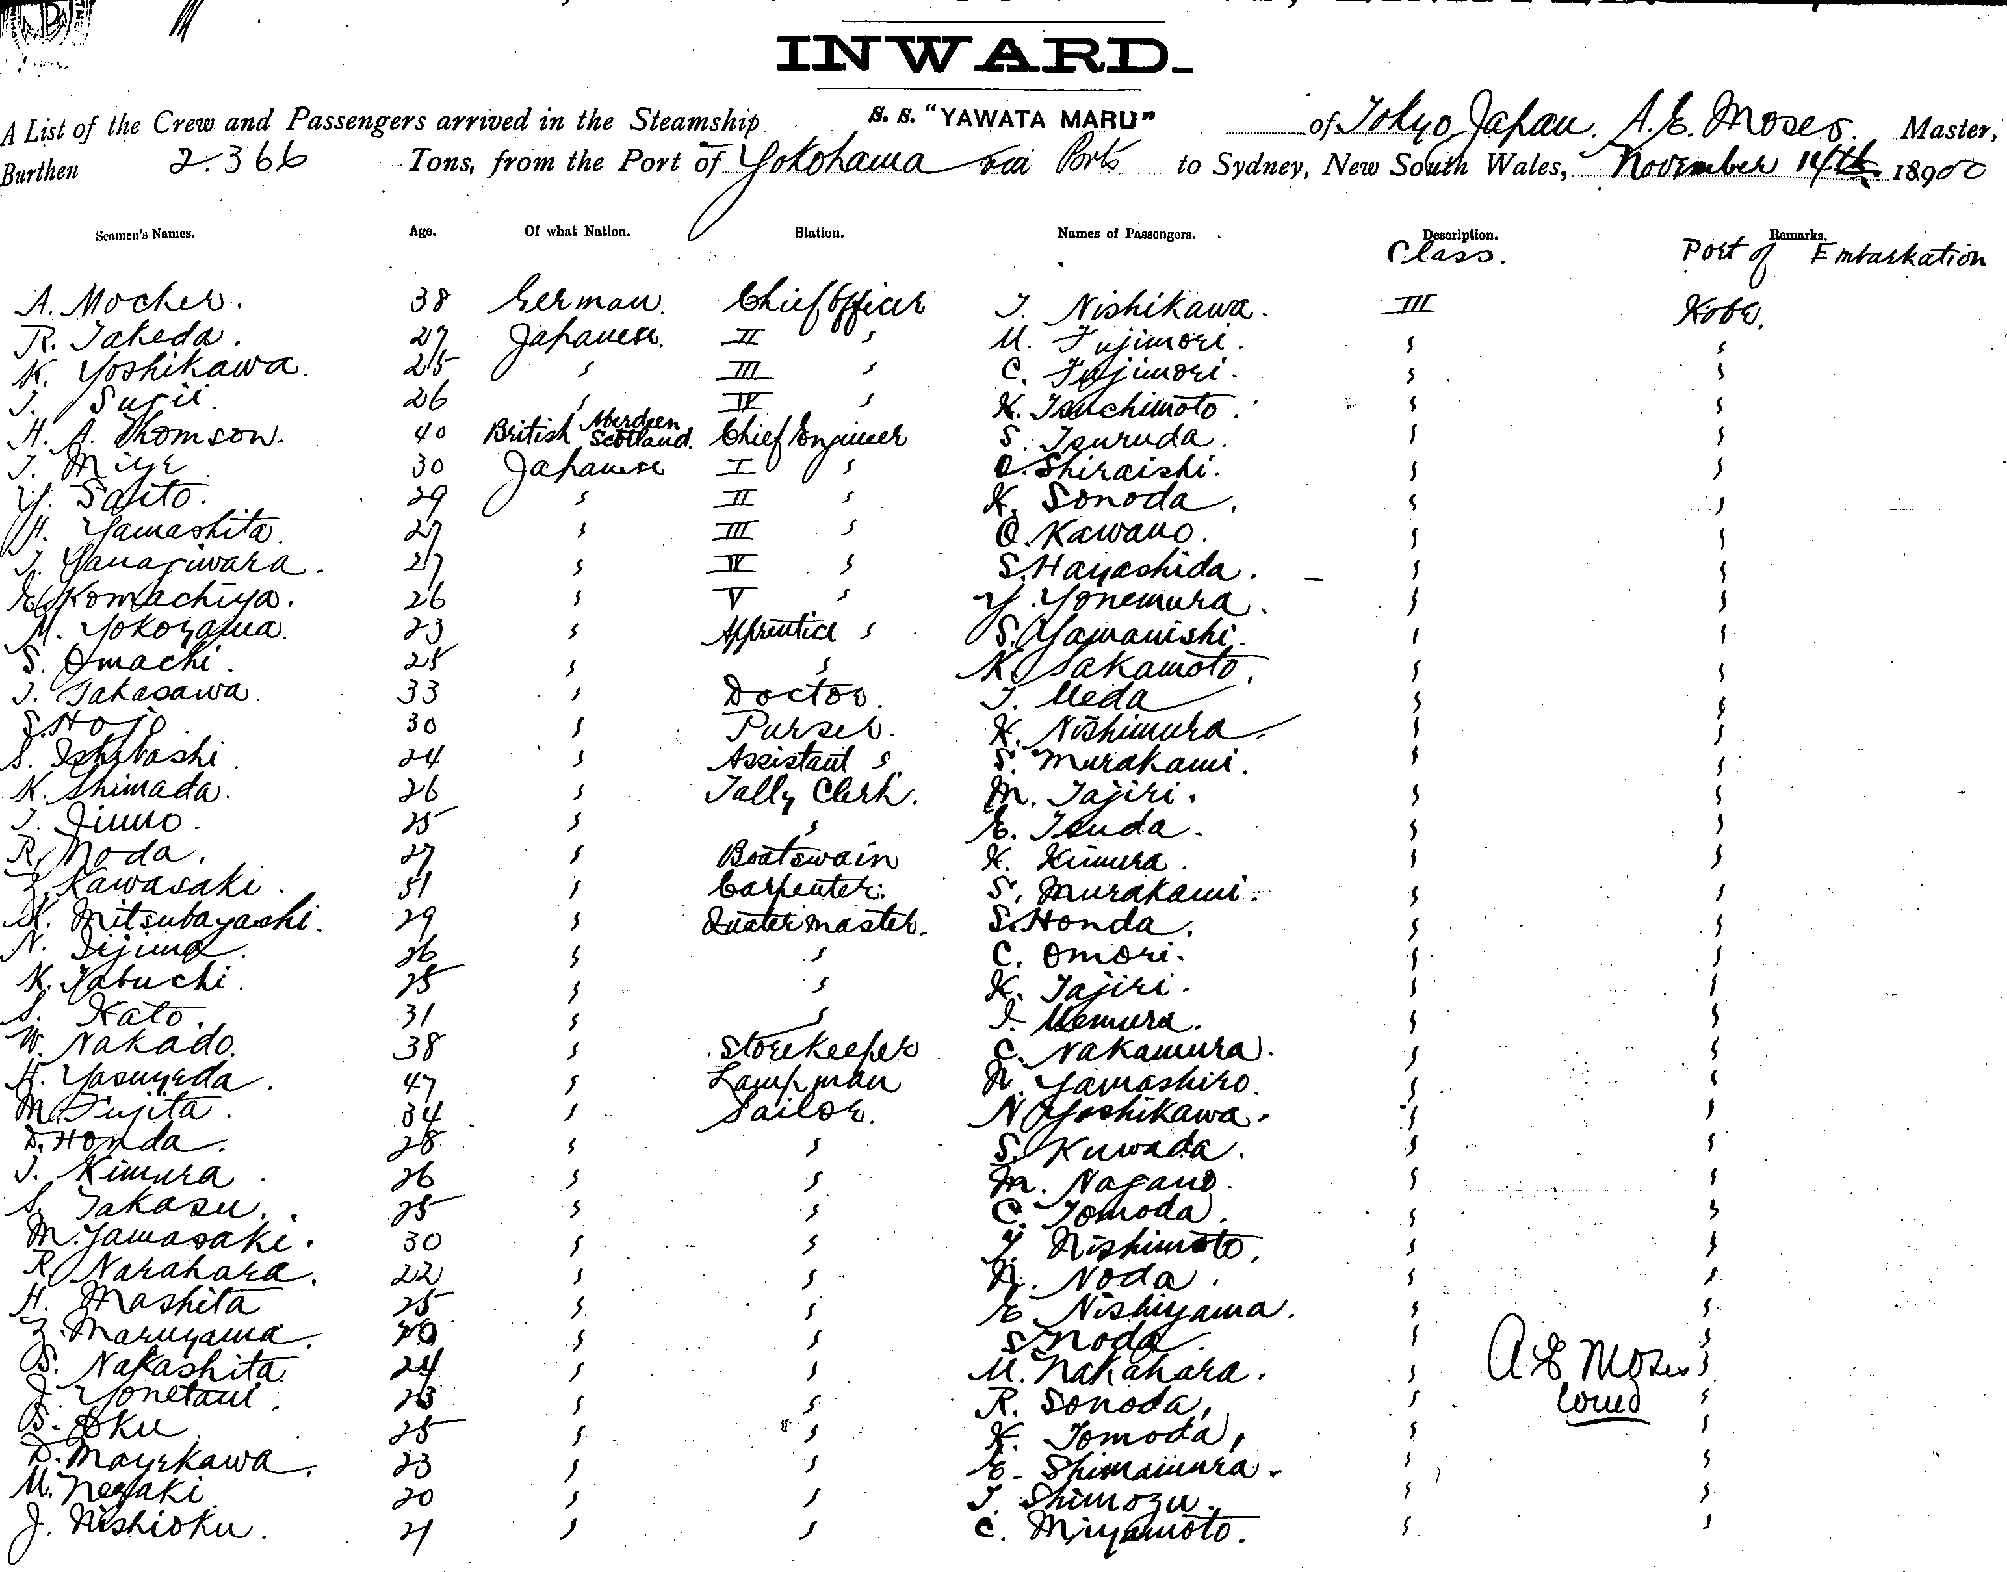 INWARD.
A List of the Crew and Passengers arrived in the Steamship S. S. "YAWATA MARU" of Tokyo Japan. A. E. Moses. Master,
Burthen 2.366 Tons, from the Port of Yokohama via Ports to Sydney, New South Wales, November 14th 18900
Seamen's Names. Age. Of what Nation. Station. Names of Passengers. Description. Remarks.
Class. Port of Embarkation
A. Mocher. 38 German. Chief Officer T. Nishikawa. III Kobe.
R. Takeda. 27 Japanese. II " U. Fujimori. " "
K. Yoshikawa. 25 " III " C. Fujimori. " "
T. Sugii. 26 " IV " K. Tsuchimoto. " "
H. A. Thomson. 40 British Aberdeen Scotland. Chief Engineer S. Tsuruda. " "
T. Miye 30 Japanese I " O. Shiraishi. " "
Y. Saito. 29 " II " K. Sonoda. " "
H. Yamashita. 27 " III " O. Kawano. " "
T. Yanagiwara. 27 " IV " S. Hayashida. " "
E. Komachiya. 26 " V " Y. Yonemura. " "
M. Yokoyama. 23 " Apprentice " S. Yamanishi. " "
S. Omachi. 25 " " K. Sakamoto. " "
T. Takasawa. 33 " Doctor. T. Ueda " "
S. Hojo 30 " Purser. K. Nishimura " "
S. Ishibashi 24 " Assistant " S. Murakami. " "
K. Shimada. 26 " Tally Clerk. M. Tajiri. " "
T. Jinno. 25 " " E. Tsuda. " "
R. Noda. 27 " Boatswain K. Kimura. " "
Z. Kawasaki. 51 " Carpenter. S. Murakami. " "
K. Mitsubayashi. 29 " Quatermaster. S. Honda. " "
N. Iijima. 26 " " C. Omori. " "
K. Yabuchi. 25 " " K. Tajiri. " "
S. Kato. 31 " " I. Uemura. " "
W. Nakado. 38 " Storekeeper C. Nakamura. " "
H. Yasuyeda. 47 " Lampman N. Yamashiro. " "
M. Fujita. 34 " Sailor. N. Yoshikawa. " "
D. Honda. 28 " " S. Kuwada. " "
T. Kimura. 26 " " M. Nagano. " "
S. Takasu. 25 " " C. Tomoda. " "
M. Yamasaki. 30 " " Y. Nishimoto. " "
R. Narahara. 22 " " N. Noda. " "
H. Mashita 25 " " E. Nishiyama. " "
Z. Maruyama. 20 " " S. Noda " "
S. Nakashita. 24 " " U. Nakahara. " A E Moses "
J. Yonetani. 23 " " R. Sonoda, " "
S. Oku 25 " " K. Tomoda, " "
D. Mayekawa. 23 " " E. Shimamura. " "
M. Negaki 20 " " T. Shimozu. " "
J. Nishioku. 21 " " C. Miyamoto. " "